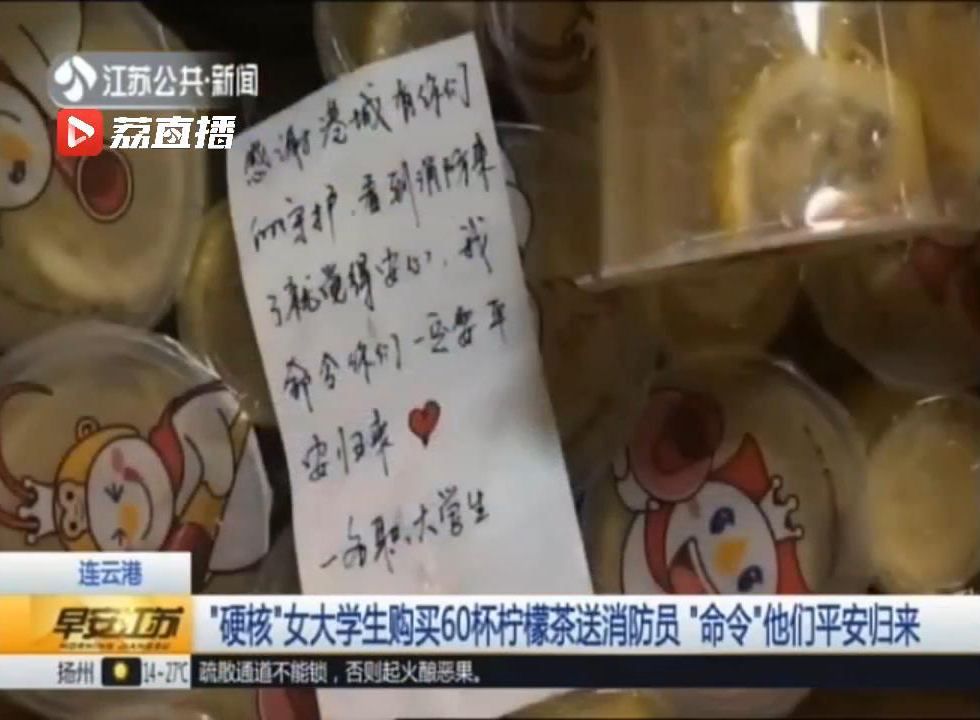 江苏公共·新闻
荔直播
感谢港城有你们
的守护，看到消防来
了就觉得安心，我
命令你们一定要平
安归来
一名 大学生
连云港
早安江苏
"硬核"女大学生购买60杯柠檬茶送消防员 "命令"他们平安归来
扬州 14-27℃ 疏散通道不能锁，否则起火酿恶果。